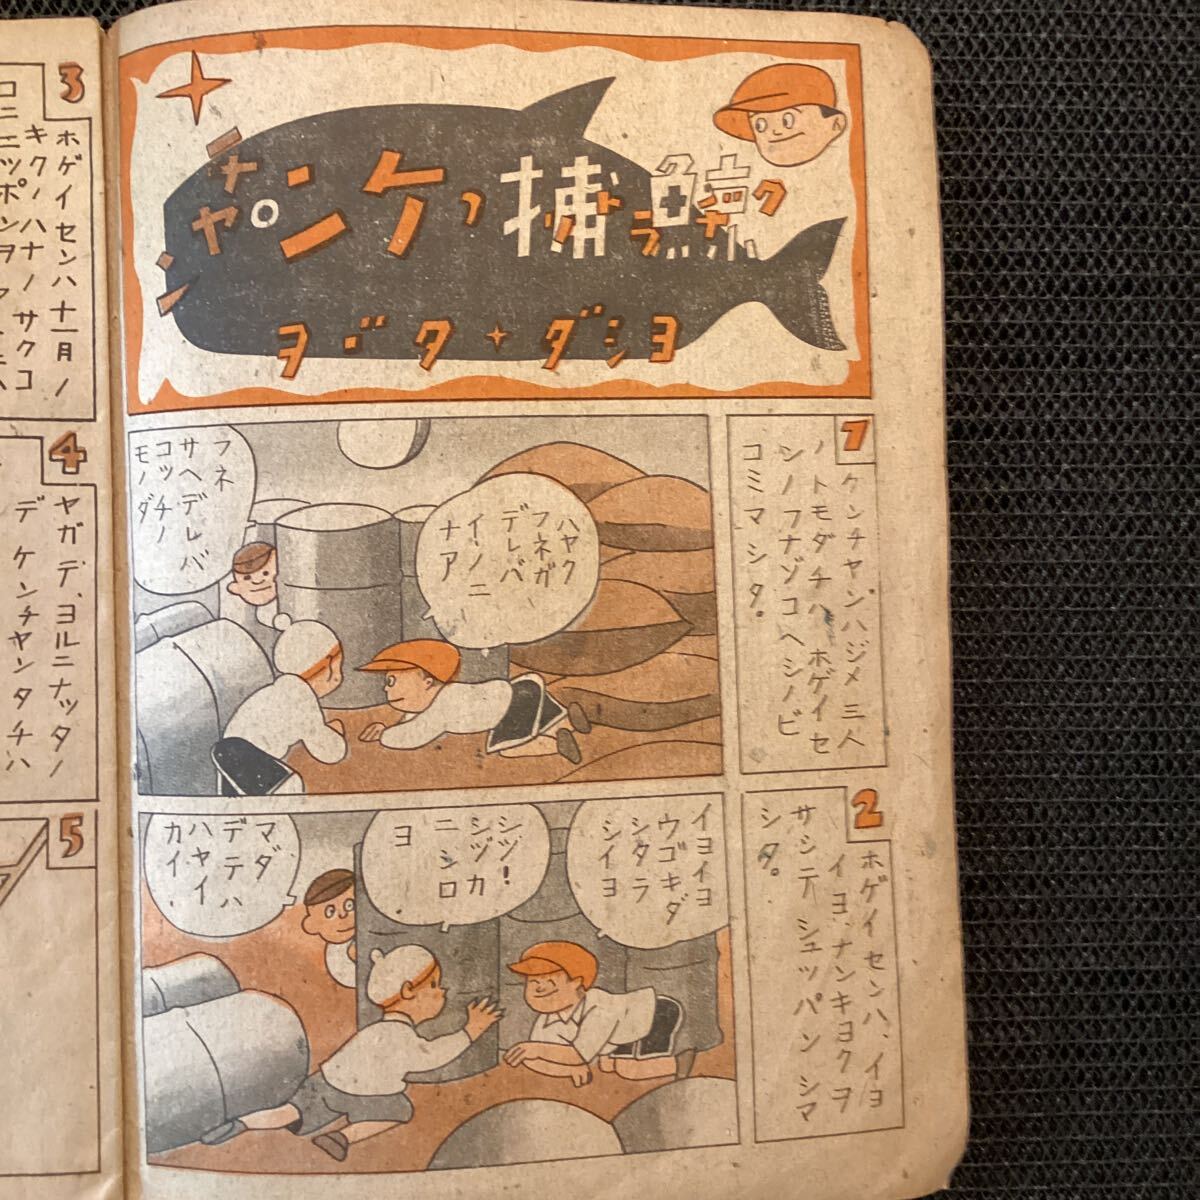 鯨捕ノケンチヤン
クヂラトリ
ヨシダ・タヾヲ
1
ケンチヤンハジメ三人
ノトモダチハ、ホゲイセ
ンノフナゾコヘシノビ
コミマシタ。
ハヤク
フネガ
デレバ
イーノニ
ナア
フネ
サヘデレバ
コツチノ
モノダ
2
ホゲイセンハ、イヨ
イヨ、ナンキヨクヲ
サシテシュツパンシマ
シタ。
イヨイヨ
ウゴキダ
シタラ
シイヨ
シツ!
シヅカ
ニシロ
ヨ
マダ
デテハ
ハヤイ
カイ
3
ホゲイセンハ十一月ノ
キクノハナノサクコ
ロニニツポンヲ
4
ヤガデ、ヨルニナツタノ
デケンチヤンタチハ
5